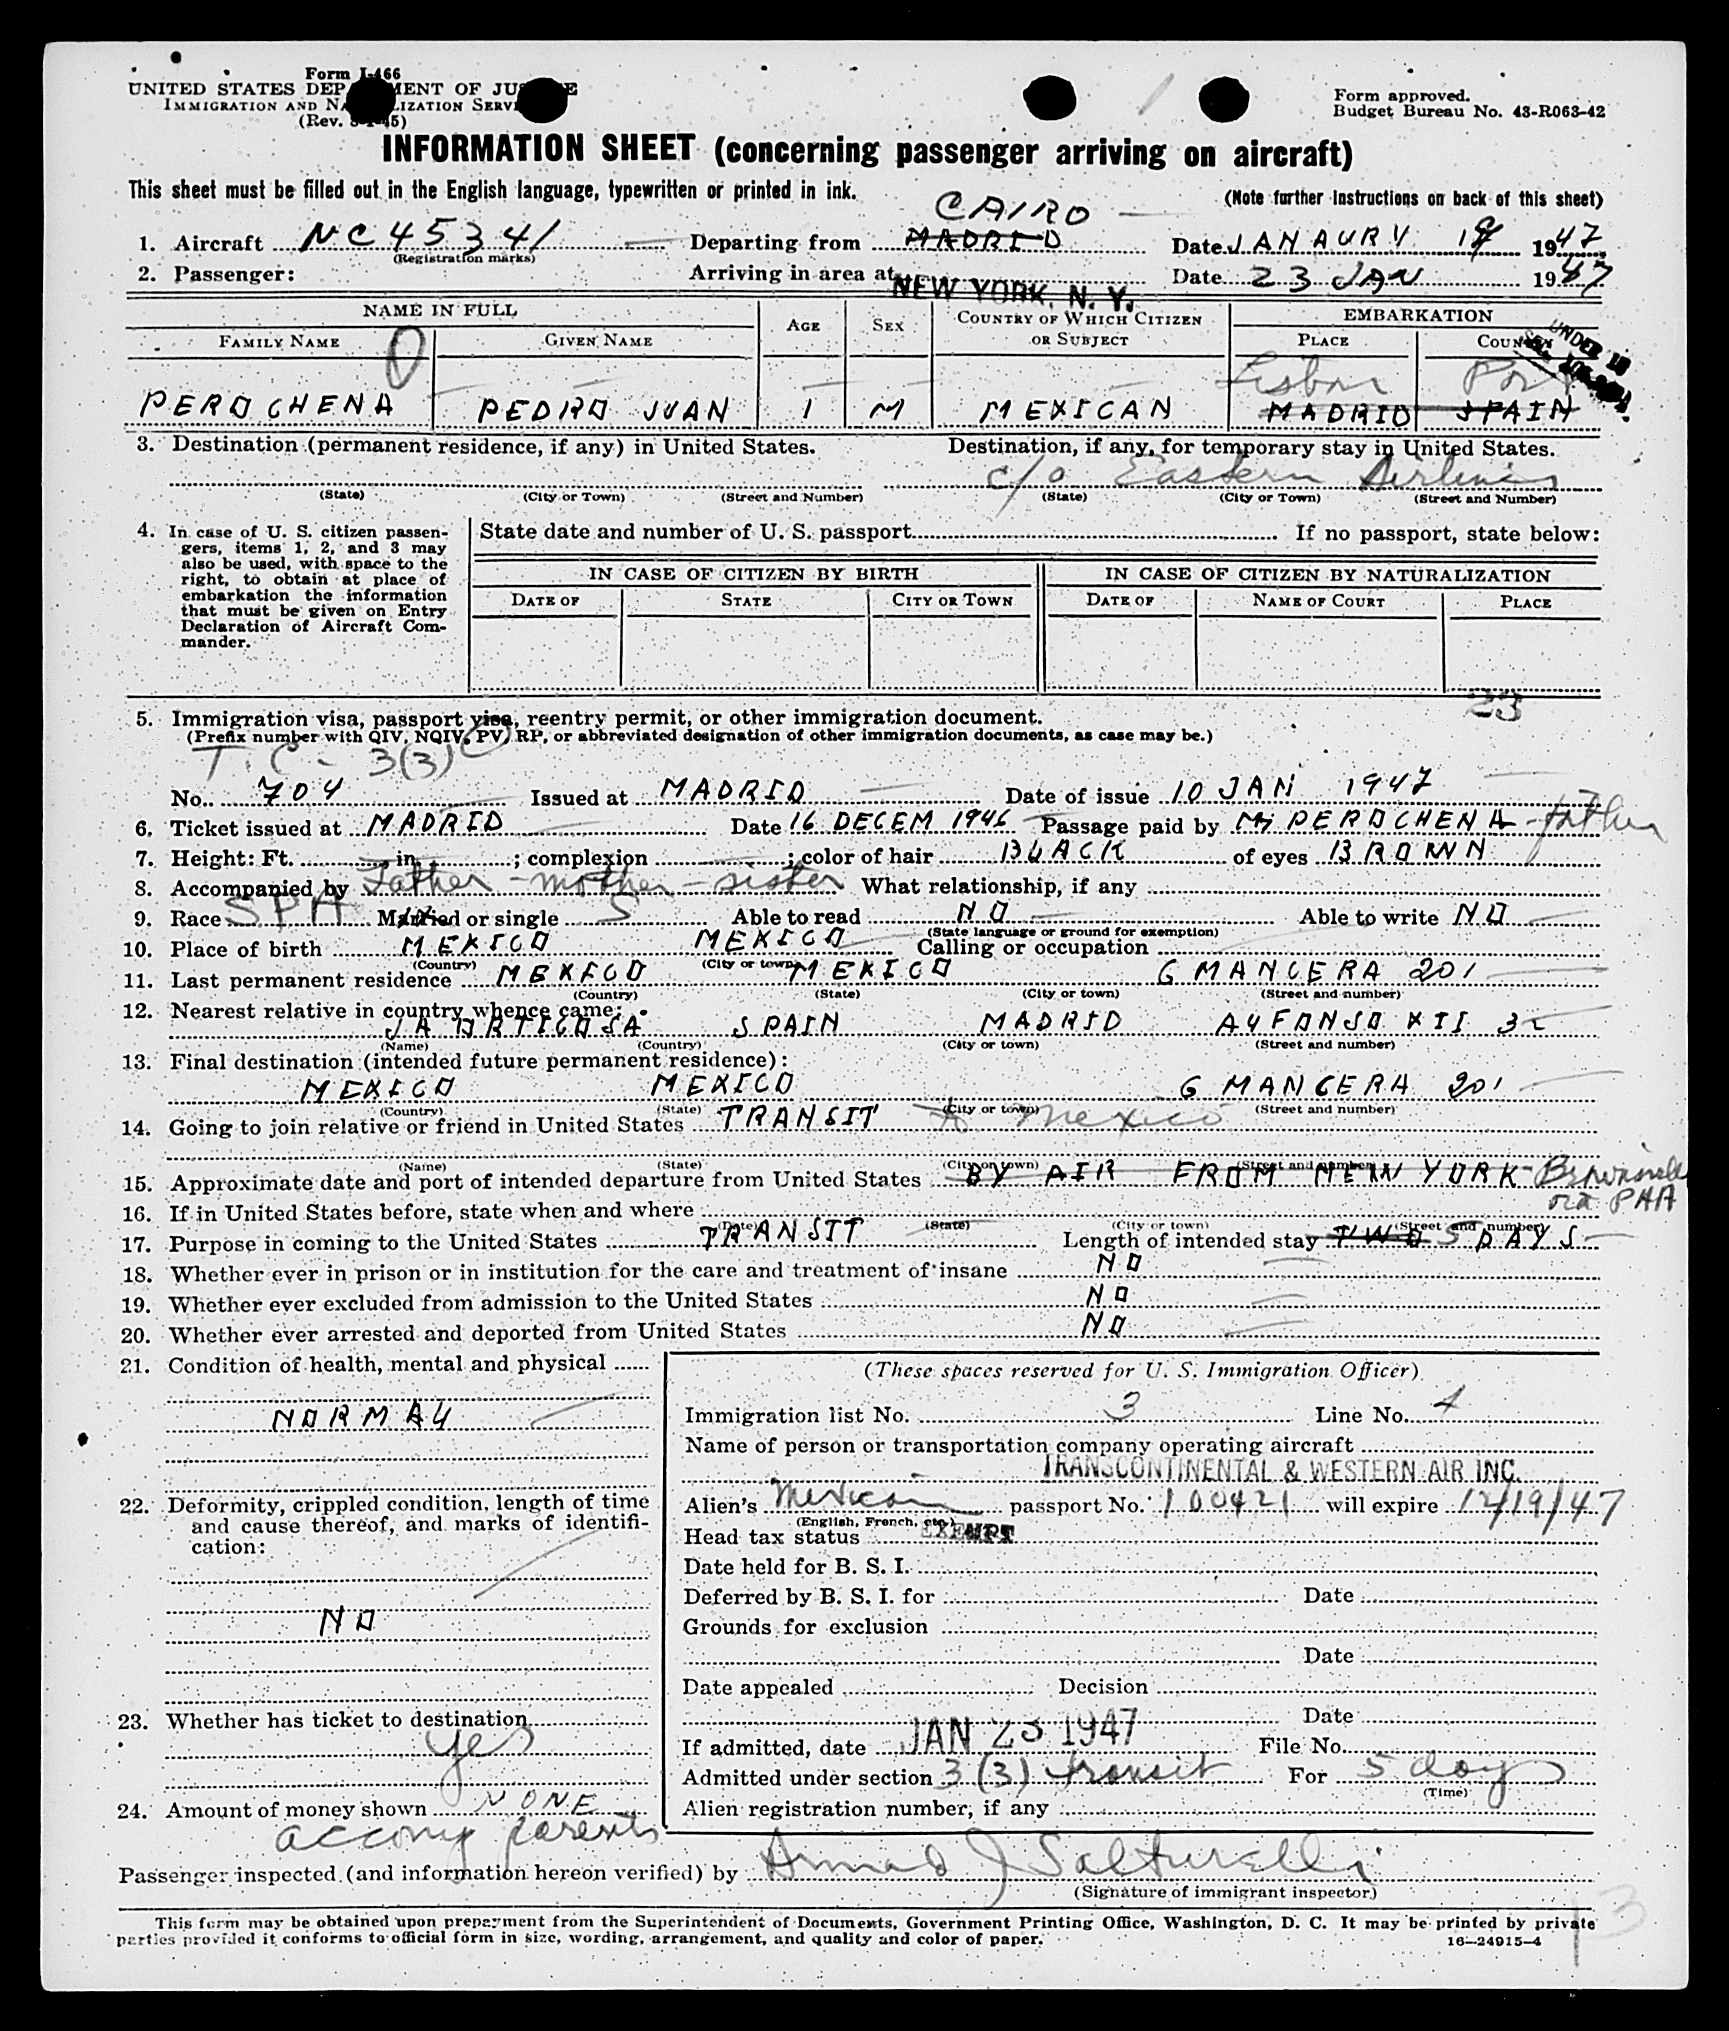 Form I-466
UNITED STATES DEPARTMENT OF JUSTICE
IMMIGRATION AND NATURALIZATION SERVICE
(Rev. 45)
Form approved.
Budget Bureau No. 43-R063-42
INFORMATION SHEET (concerning passenger arriving on aircraft)
This sheet must be filled out in the English language, typewritten or printed in ink.
(Note further instructions on back of this sheet)
CAIRO
1. Aircraft NC45341 Departing from MADRID Date JANAURY 19 1947
(Registration marks)
2. Passenger: Arriving in area at NEW YORK, N. Y. Date 23 JAN 1947
NAME IN FULL AGE SEX COUNTRY OF WHICH CITIZEN OR SUBJECT EMBARKATION
FAMILY NAME GIVEN NAME PLACE COUNTRY
UNDER 16
Lisbon Port
PEROCHENA PEDRO JUAN 1 M MEXICAN MADRID SPAIN
3. Destination (permanent residence, if any) in United States. Destination, if any, for temporary stay in United States.
c/o Eastern Airlines
(State) (City or Town) (Street and Number) (State) (City or Town) (Street and Number)
4. In case of U. S. citizen passengers, items 1, 2, and 3 may also be used, with space to the right, to obtain at place of embarkation the information that must be given on Entry Declaration of Aircraft Commander.
State date and number of U. S. passport If no passport, state below:
IN CASE OF CITIZEN BY BIRTH IN CASE OF CITIZEN BY NATURALIZATION
DATE OF STATE CITY OR TOWN DATE OF NAME OF COURT PLACE
23
5. Immigration visa, passport visa, reentry permit, or other immigration document.
(Prefix number with QIV, NQIV, PV, RP, or abbreviated designation of other immigration documents, as case may be.)
T.C. - 3(3)
No. 704 Issued at MADRID Date of issue 10 JAN 1947
6. Ticket issued at MADRID Date 16 DECEM 1946 Passage paid by Mr PEROCHENA - father
7. Height: Ft. in ; complexion ; color of hair BLACK of eyes BROWN
8. Accompanied by Father - mother - sister What relationship, if any
9. Race SPA Married or single S Able to read NO Able to write NO
(State language or ground for exemption)
10. Place of birth MEXICO MEXICO Calling or occupation
(Country) (City or town)
11. Last permanent residence MEXICO MEXICO G MANCERA 201
(Country) (State) (City or town) (Street and number)
12. Nearest relative in country whence came:
JA ORTICOSA SPAIN MADRID ALFONSO XII 32
(Name) (Country) (City or town) (Street and number)
13. Final destination (intended future permanent residence):
MEXICO MEXICO G MANCERA 201
(Country) (State) (City or town) (Street and number)
14. Going to join relative or friend in United States TRANSIT to Mexico
(Name) (State) (City or town) (Street and number)
15. Approximate date and port of intended departure from United States BY AIR FROM NEW YORK - Brownsville
via PAA
16. If in United States before, state when and where
(Date) (State) (City or town) (Street and number)
17. Purpose in coming to the United States TRANSIT Length of intended stay TWO 5 DAYS
18. Whether ever in prison or in institution for the care and treatment of insane NO
19. Whether ever excluded from admission to the United States NO
20. Whether ever arrested and deported from United States NO
21. Condition of health, mental and physical
NORMAL
22. Deformity, crippled condition, length of time and cause thereof, and marks of identification:
NO
23. Whether has ticket to destination
yes
24. Amount of money shown NONE
accomp parents
(These spaces reserved for U. S. Immigration Officer)
Immigration list No. 3 Line No. 4
Name of person or transportation company operating aircraft
TRANSCONTINENTAL & WESTERN AIR INC.
Alien's Mexican passport No. 100421 will expire 12/19/47
(English, French, etc.)
Head tax status EXEMPT
Date held for B. S. I.
Deferred by B. S. I. for Date
Grounds for exclusion
Date
Date appealed Decision
Date
If admitted, date JAN 23 1947 File No.
Admitted under section 3(3) transit For 5 days
(Time)
Alien registration number, if any
Passenger inspected (and information hereon verified) by Armand J Salturelli
(Signature of immigrant inspector)
13
This form may be obtained upon prepayment from the Superintendent of Documents, Government Printing Office, Washington, D. C. It may be printed by private
parties provided it conforms to official form in size, wording, arrangement, and quality and color of paper.
16—24915-4